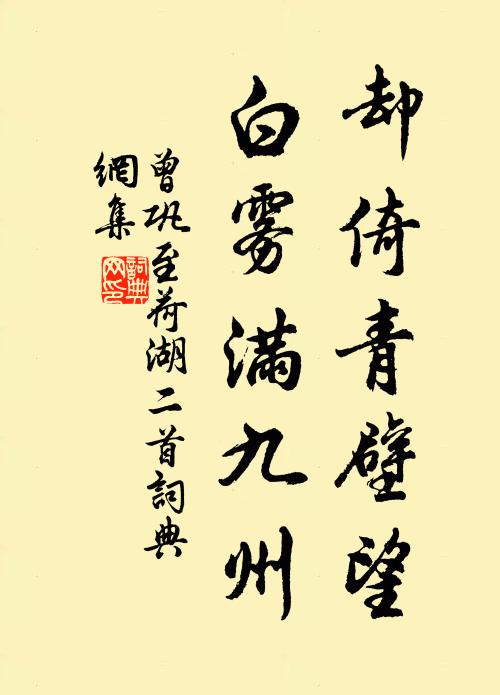 却倚青壁望
白雾满九州
曾巩至荷湖二首詞典
網集
詞典
网印